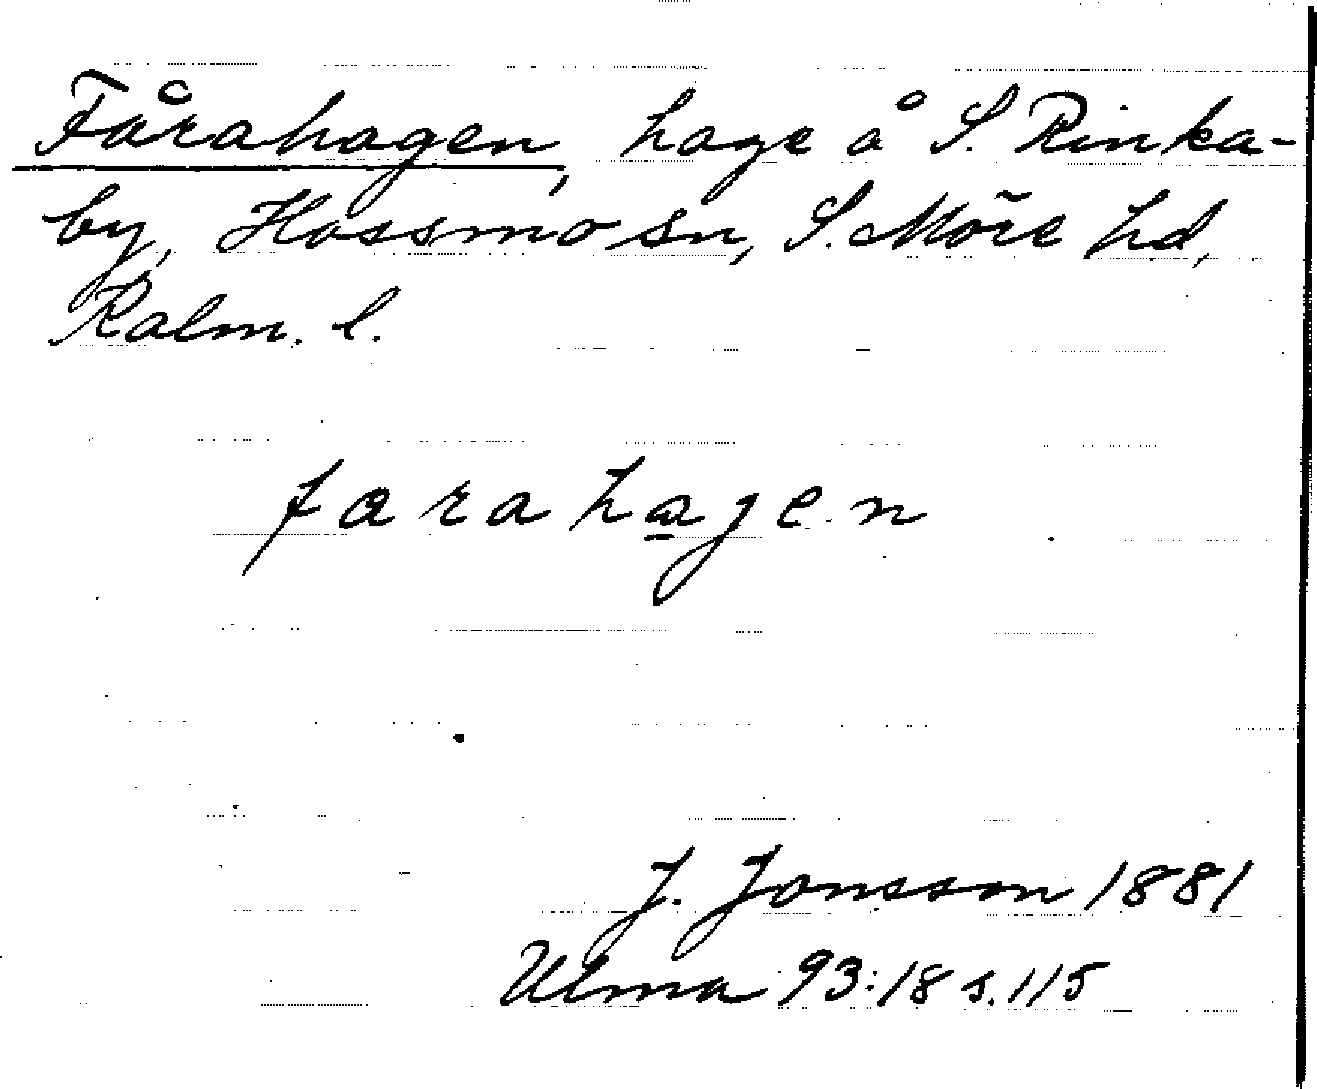 Fårahagen, hage å S. Rinka-
by, Hossmo sn, S. Möre hd,
Kalm. l.
farahagen
J. Jonsson 1881
Ulma 93:18 s. 115